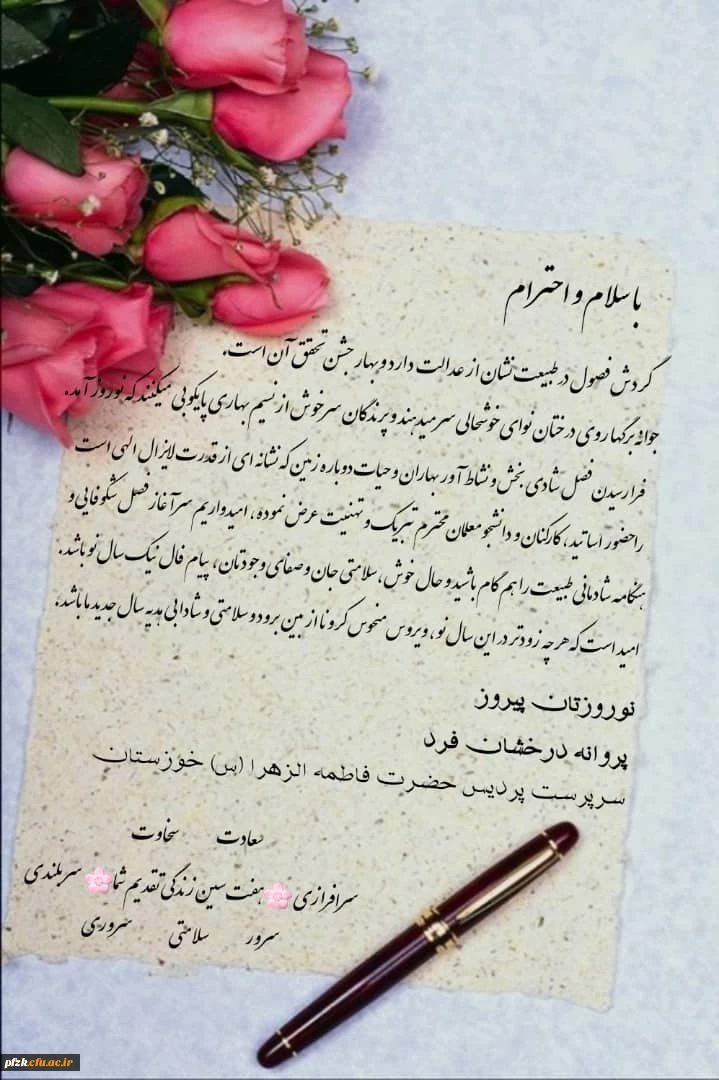 با سلام و احترام
گردش فصول در طبیعت نشان از عدالت دارد و بهار جشن تحقق آن است.
جوانهٔ برگها روی درختان نوای خوشحالی سرمیدهند و پرندگان سرخوش از نسیم بهاری پایکوبی میکنند که نوروز آمد.
فرارسیدن فصل شادی بخش و نشاط آور بهاران و حیات دوباره زمین که نشانه ای از قدرت لایزال الهی است
راحضور اساتید، کارکنان و دانشجو معلمان محترم تبریک و تهنیت عرض نموده، امیدواریم سرآغاز فصل شکوفایی و
هنگامه شادمانی طبیعت را هم گام باشید و حال خوش، سلامتی جان و صفای وجودتان، پیام فال نیک سال نو باشد.
امید است که هر چه زودتر در این سال نو، ویروس منحوس کرونا از بین برود و سلامتی و شادابی هدیه سال جدید ما باشد.
نوروزتان پیروز
پروانه درخشان فرد
سرپرست پردیس حضرت فاطمه الزهرا (س) خوزستان
سعادت سخاوت
سرافرازی 🌸 هفت سین زندگی تقدیم شما 🌸 سربلندی
سرور سلامتی سروری
pfzk.cfu.ac.ir